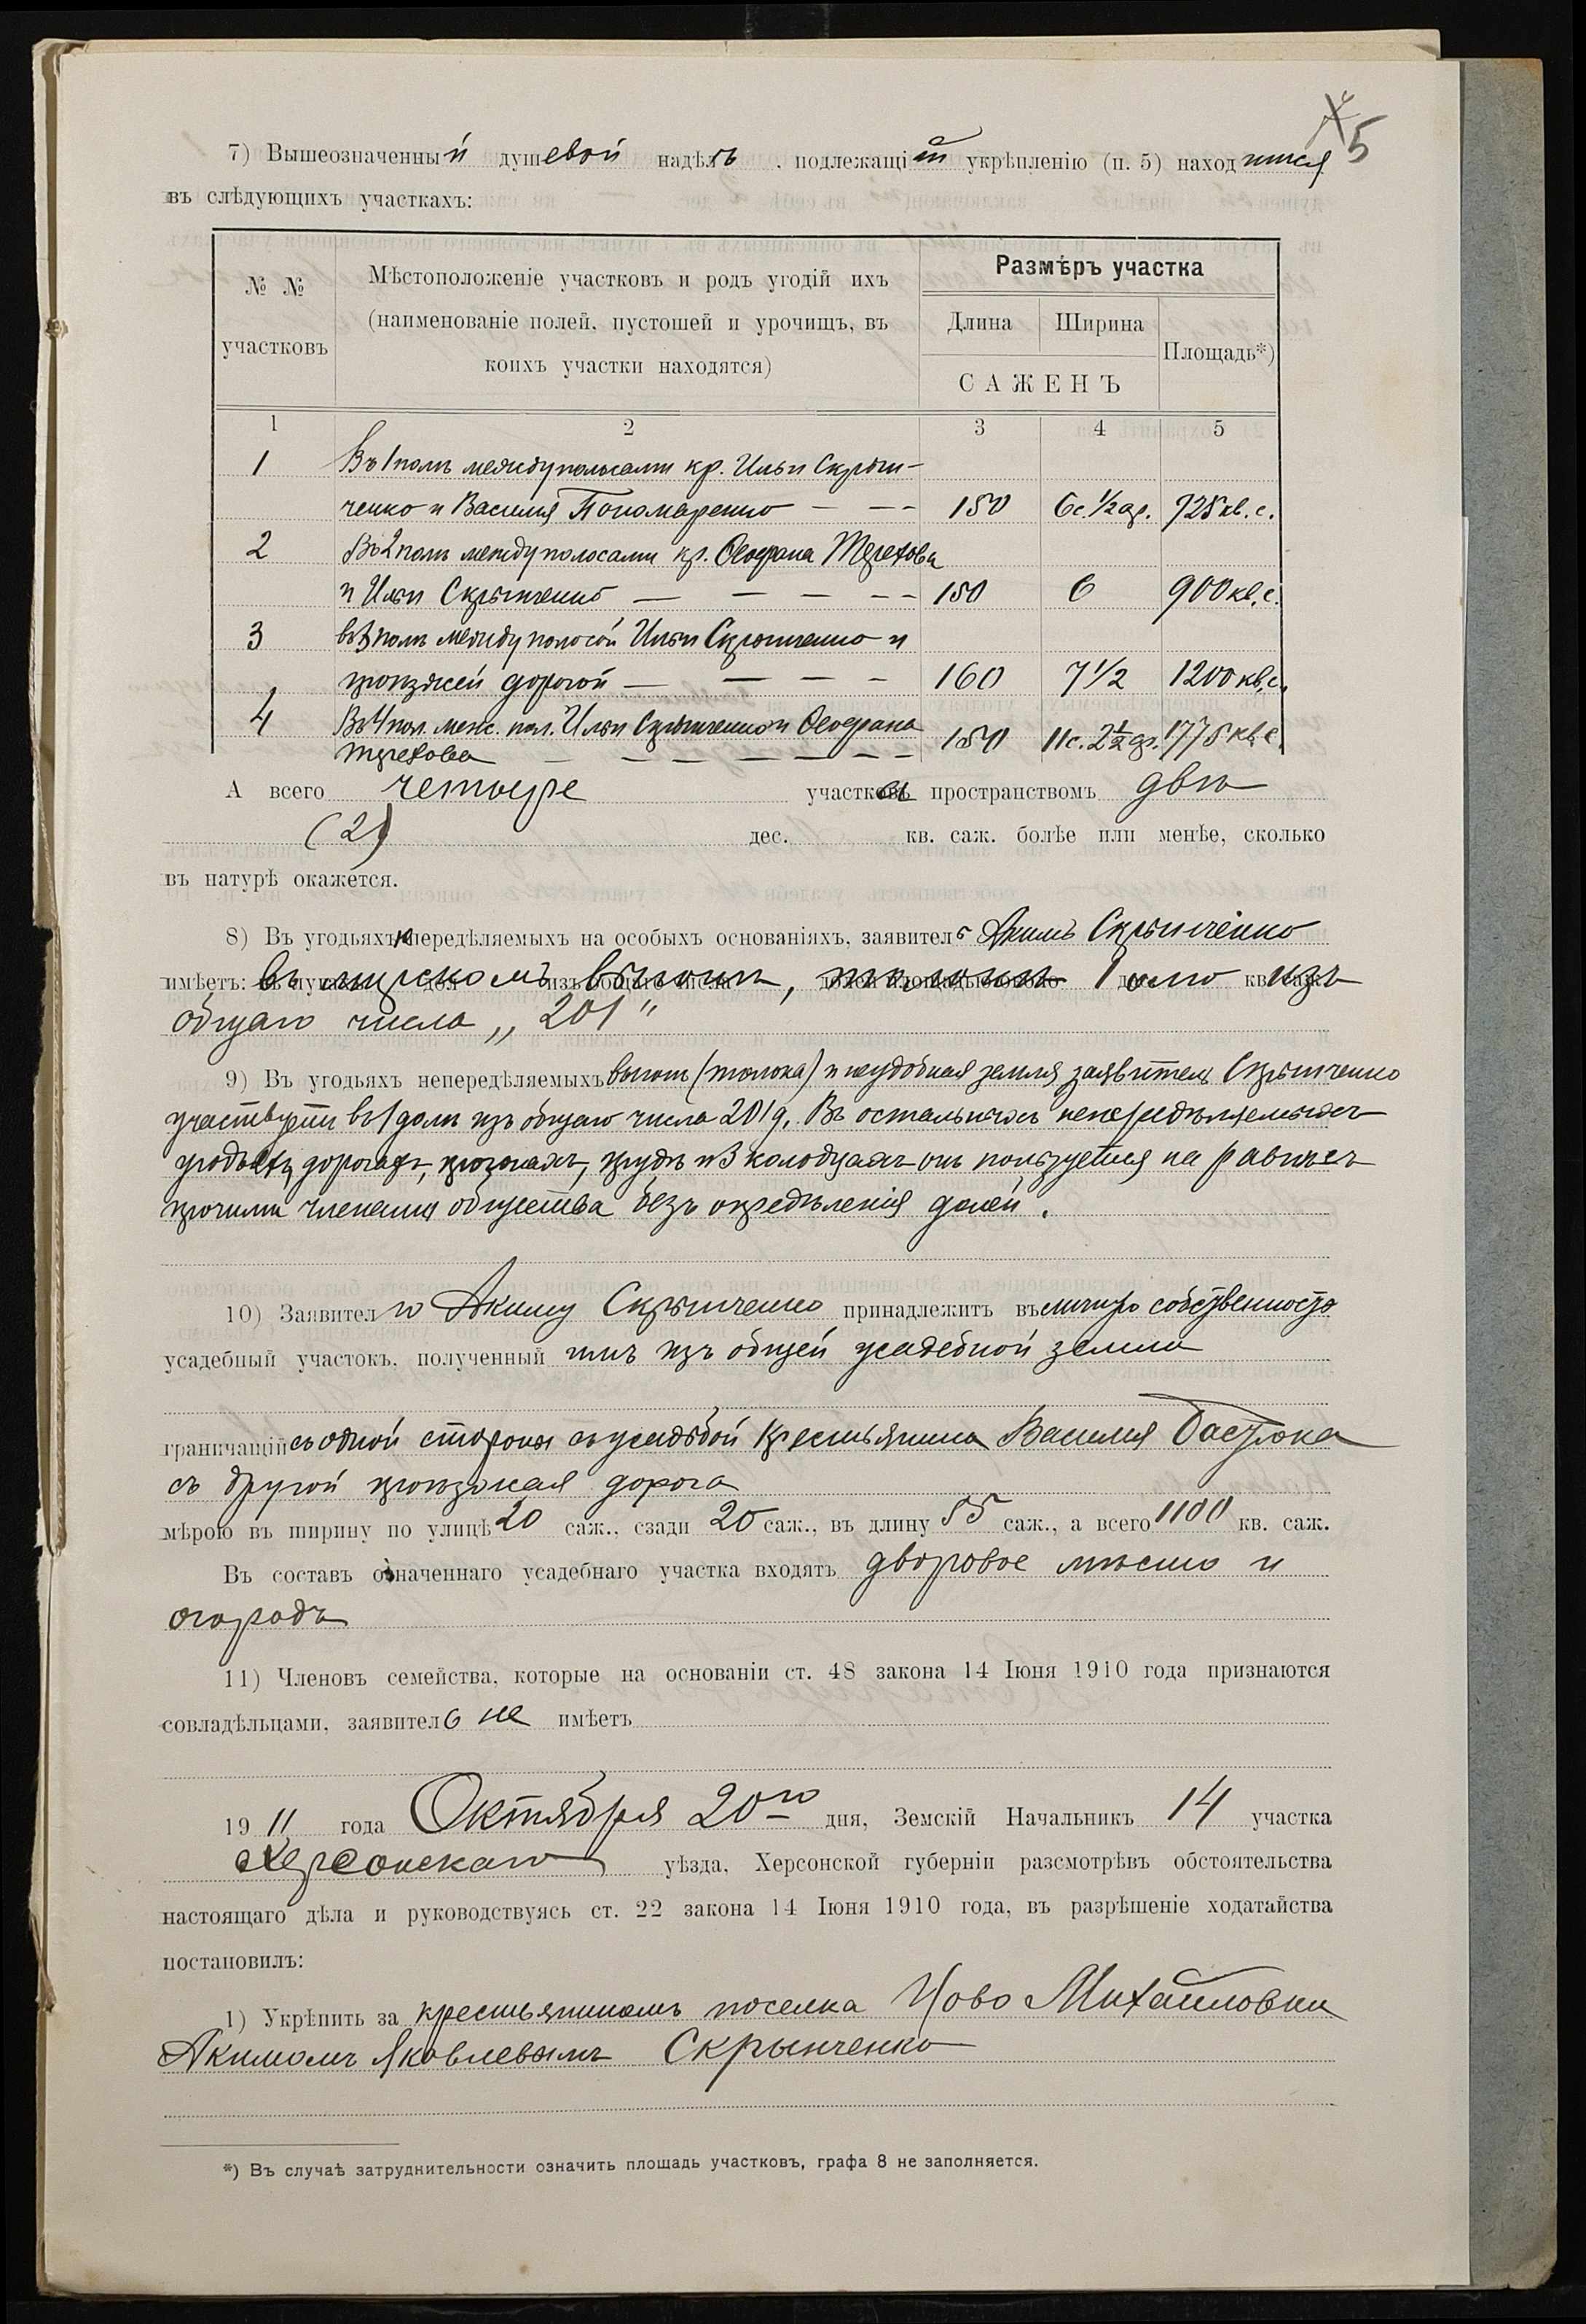 5
7) Вышеозначенный душевой надѣлъ, подлежащій укрѣпленію (п. 5) находится
въ слѣдующихъ участкахъ:
№ № участковъ
Мѣстоположеніе участковъ и родъ угодій ихъ
(наименованіе полей, пустошей и урочищъ, въ
коихъ участки находятся)
Размѣръ участка
Длина Ширина Площадь*)
САЖЕНЪ
1 2 3 4 5
1 Въ 1 полѣ между полосами кр. Ильи Скрын-
ченко и Василія Пономаренко 150 6с. ½ ар. 725 кв. с.
2 Въ 2 полѣ между полосами кр. Терехова
и Ильи Скрынченко 150 6 900 кв. с.
3 въ 3 полѣ между полосой Ильи Скрынченко и
проѣзжей дорогой 160 7 1/2 1200 кв. с.
4 Въ 4 пол. меж. пол. Ильи Скрынченко и
Терехова 150 11с. 2½ ар. 1775 кв. с.
А всего четыре участка пространствомъ двѣ
(2) дес. кв. саж. болѣе или менѣе, сколько
въ натурѣ окажется.
8) Въ угодьяхъ, передѣляемыхъ на особыхъ основаніяхъ, заявитель Акимъ Скрынченко
имѣетъ: въ мірскомъ выгонѣ, 1 долю изъ
общаго числа „201"
9) Въ угодьяхъ непередѣляемыхъ выгонъ (толока) и неудобная земля заявитель Скрынченко
участвуетъ въ 1 доли изъ общаго числа 201 д. Въ остальныхъ непередѣляемыхъ
угодьяхъ, дорогахъ, прогонахъ, прудѣ и 3 колодцахъ онъ пользуется на равнѣ съ
прочими членами общества безъ опредѣленія долей.
10) Заявителю Акиму Скрынченко принадлежитъ въ личную собственность
усадебный участокъ, полученный имъ изъ общей усадебной земли
граничащій съ одной стороны съ усадьбой крестьянина Василія Бастрюка
съ другой проѣзжая дорога
мѣрою въ ширину по улицѣ 20 саж., сзади 20 саж., въ длину 55 саж., а всего 1100 кв. саж.
Въ составъ означеннаго усадебнаго участка входятъ дворовое мѣсто и
огородъ
11) Членовъ семейства, которые на основаніи ст. 48 закона 14 Іюня 1910 года признаются
совладѣльцами, заявитель не имѣетъ
1911 года Октября 20го дня, Земскій Начальникъ 14 участка
Херсонскаго уѣзда, Херсонской губерніи разсмотрѣвъ обстоятельства
настоящаго дѣла и руководствуясь ст. 22 закона 14 Іюня 1910 года, въ разрѣшеніе ходатайства
постановилъ:
1) Укрѣпить за крестьяниномъ поселка Ново Михайловки
Акимомъ Яковлевымъ Скрынченко
*) Въ случаѣ затруднительности означить площадь участковъ, графа 8 не заполняется.